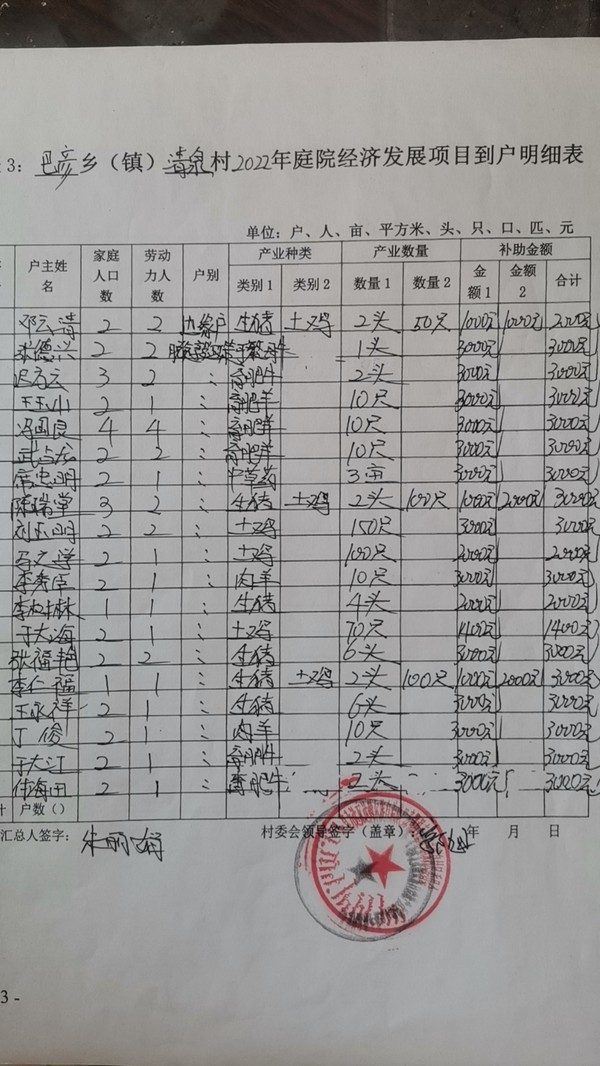 3：巴彦乡（镇）清泉村2022年庭院经济发展项目到户明细表
单位：户、人、亩、平方米、头、只、口、匹、元
户主姓名 家庭人口数 劳动力人数 户别 产业种类 产业数量 补助金额
类别1 类别2 数量1 数量2 金额1 金额2 合计
邓云清 2 2 边缘户 生猪 土鸡 2头 50只 1000元 1000元 2000元
张德兴 2 2 1头 3000元 3000元
迟方云 3 2 〃 育肥牛 2头 3000元 3000元
王玉小 2 1 〃 育肥羊 10只 3000元 3000元
冯国良 4 4 〃 育肥羊 10只 3000元 3000元
武占友 2 2 〃 育肥羊 10只 3000元 3000元
席忠明 2 1 〃 中草药 3亩 3000元 3000元
陈瑞堂 3 2 〃 生猪 土鸡 2头 100只 1000元 2000元 3000元
刘长明 2 2 〃 土鸡 150只 3000元 3000元
马文学 2 1 〃 土鸡 100只 2000元 2000元
李秀臣 2 1 〃 肉羊 10只 3000元 3000元
李树林 1 1 〃 生猪 4头 2000元 2000元
于大海 2 1 〃 土鸡 70只 1400元 1400元
张福艳 2 2 〃 生猪 6头 3000元 3000元
李仁福 1 1 〃 生猪 土鸡 2头 100只 1000元 2000元 3000元
王永祥 2 1 〃 生猪 6头 3000元 3000元
丁俊 2 1 〃 肉羊 10只 3000元 3000元
于大江 2 1 〃 育肥牛 2头 3000元 3000元
付海田 2 1 〃 育肥牛 2头 3000元 3000元
计 户数（）
汇总人签字：朱丽娟 村委会领导签字（盖章）： 年 月 日
3 -